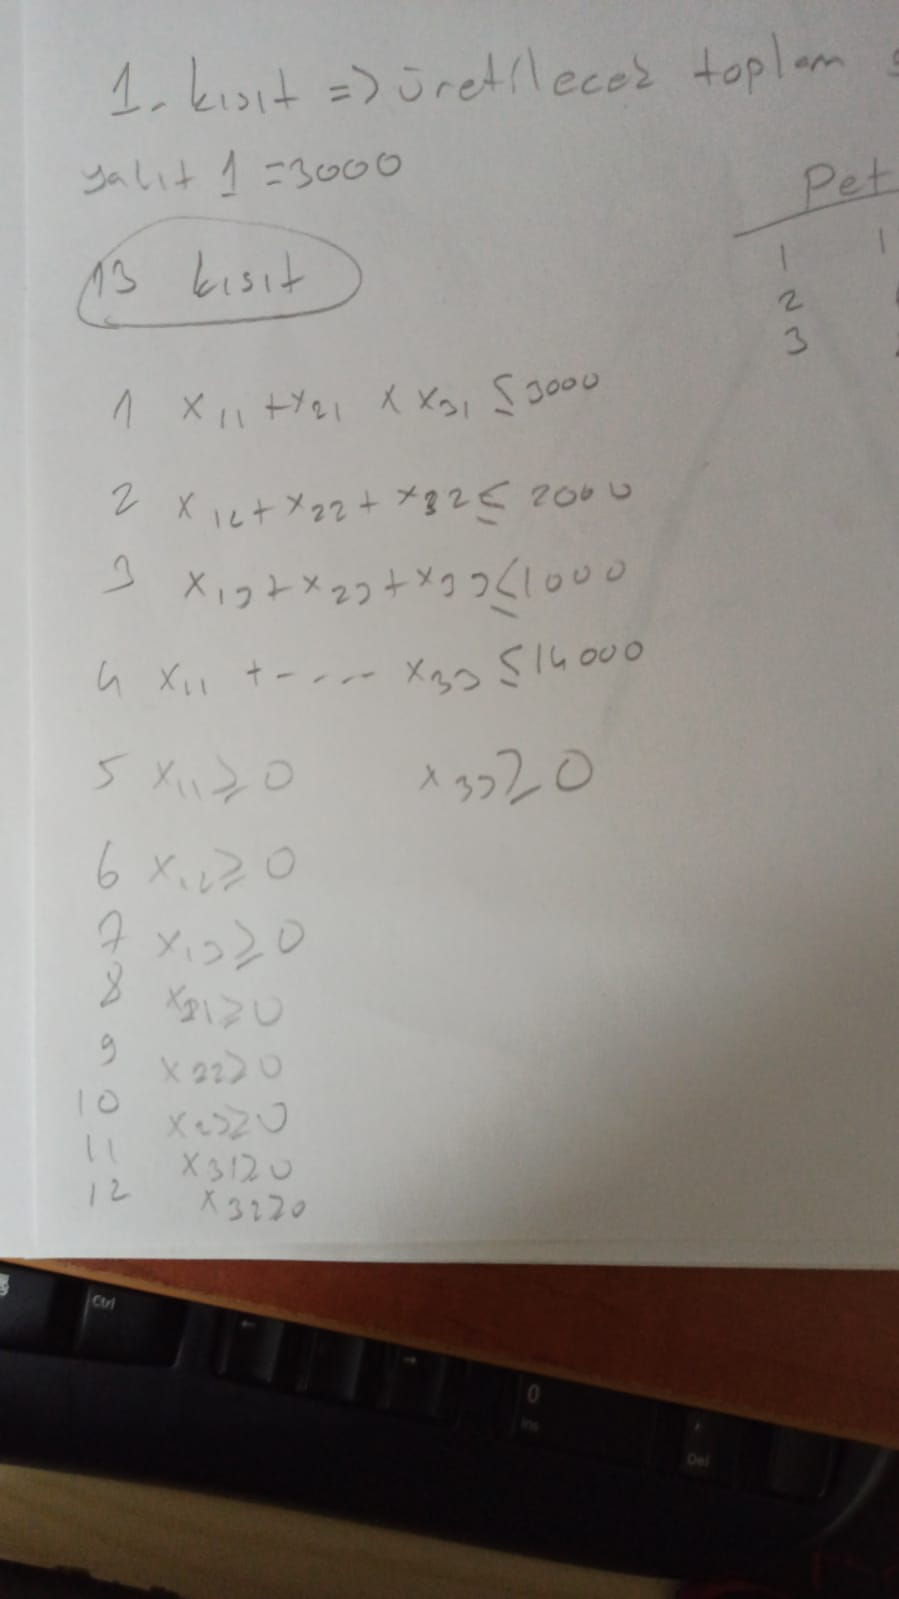 1. kısıt => üretilecek toplam
yakıt 1 = 3000
13 kısıt
Pet
1 1
2
3
1 x11 + x21 x x31 ≤ 3000
2 x12 + x22 + x32 ≤ 2000
3 x13 + x23 + x33 ≤ 1000
4 x11 + - .... x33 ≤ 14000
5 x11 ≥ 0 x33 ≥ 0
6 x12 ≥ 0
7 x13 ≥ 0
8 x21 ≥ 0
9 x22 ≥ 0
10 x23 ≥ 0
11 x31 ≥ 0
12 x32 ≥ 0
Ctrl
←
→
0
Ins
Del